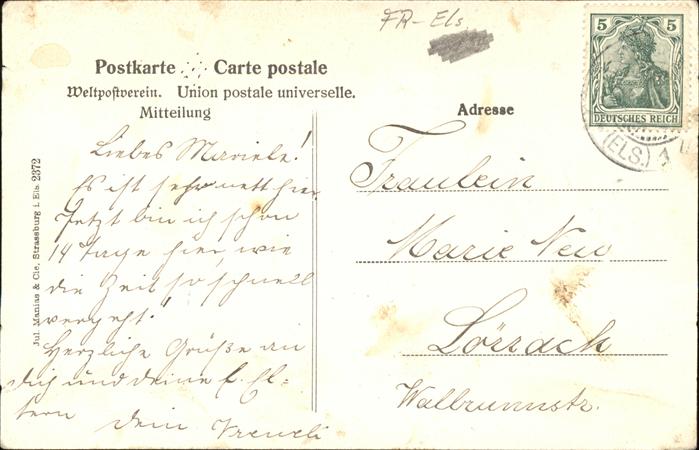 FR-Els
Postkarte Carte postale
Weltpostverein. Union postale universelle.
Mitteilung
Adresse
5 5
DEUTSCHES REICH
(ELS.)
Jul. Manias & Cie, Strassburg i. Els. 2372
Liebes Mariele!
Es ist sehr nett hier.
Jetzt bin ich schon
14 Tage hier, wie
die Zeit so schnell
vergeht!
Herzliche Grüße an
dich und deine l. El-
tern dein Vreneli
Fräulein
Marie Neu
Lörrach
Wallbrunnstr.